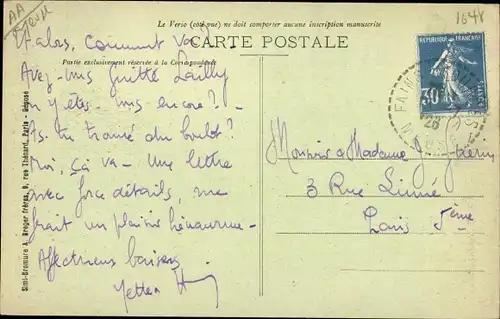 AA
1048
Le Verso (côté-vue) ne doit comporter aucune inscription manuscrite
CARTE POSTALE
Partie exclusivement réservée à la Correspondance
REPUBLIQUE FRANÇAISE
30
Simi-Bromure A. Breger frères, 9, rue Thénard, Paris - Déposé
Alors, Comment va
Avez-vous quitté Lailly
ou y êtes-vous encore?
As-tu trouvé du boulot?
Moi, ça va - Une lettre
avec force détails, me
ferait un plaisir hénaurme -
Affectueux baisers
Monsieur & Madame J.
3 Rue Linné
Paris 5ème